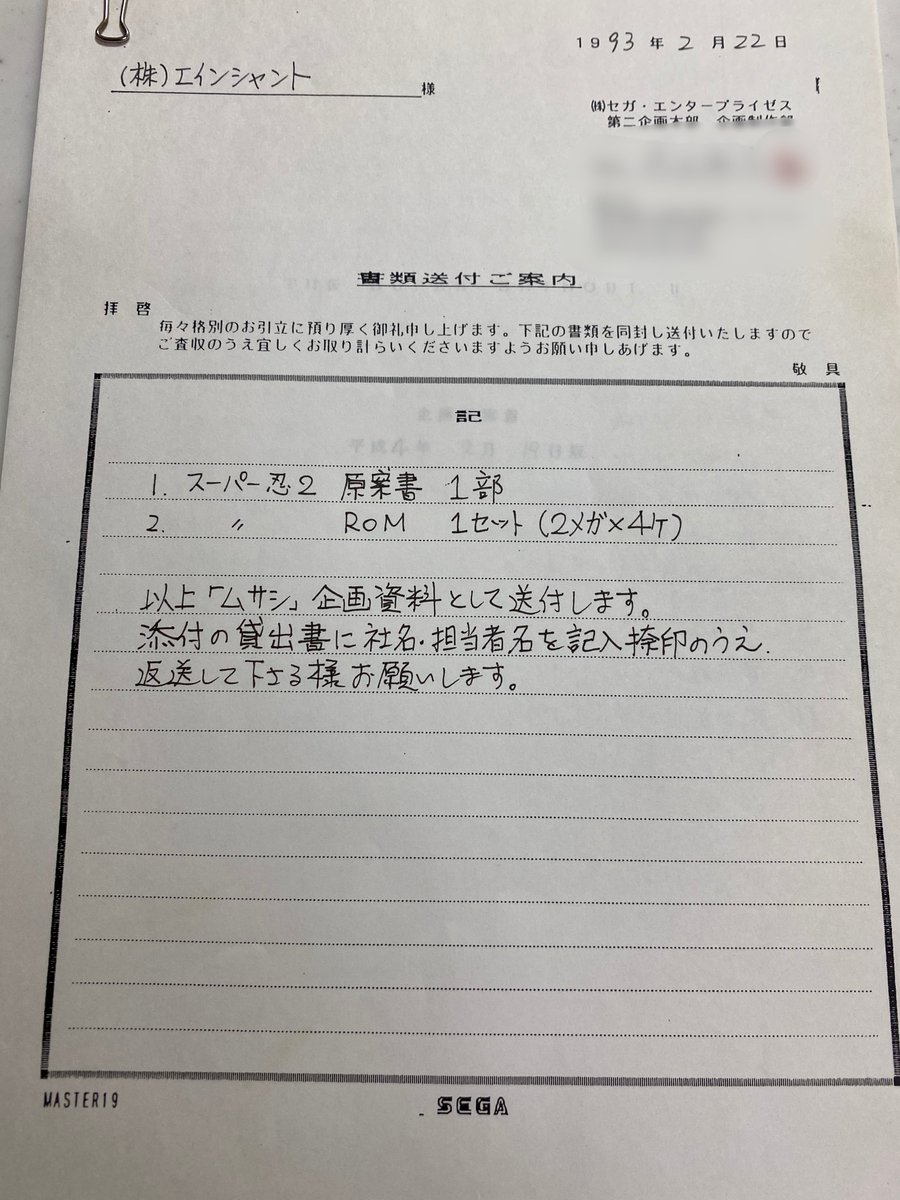 1993年2月22日
(株)エインシャント 様
㈱セガ・エンタープライゼス
第二企画本部 企画制作部
書類送付ご案内
拝啓
毎々格別のお引立に預り厚く御礼申し上げます。下記の書類を同封し送付いたしますので
ご査収のうえ宜しくお取り計らいくださいますようお願い申しあげます。
敬具
記
1. スーパー忍2 原案書 1部
2. 〃 ROM 1セット(2メガ×4ケ)
以上「ムサシ」企画資料として送付します。
添付の貸出書に社名・担当者名を記入捺印のうえ.
返送して下さる様お願いします。
MASTER19
SEGA